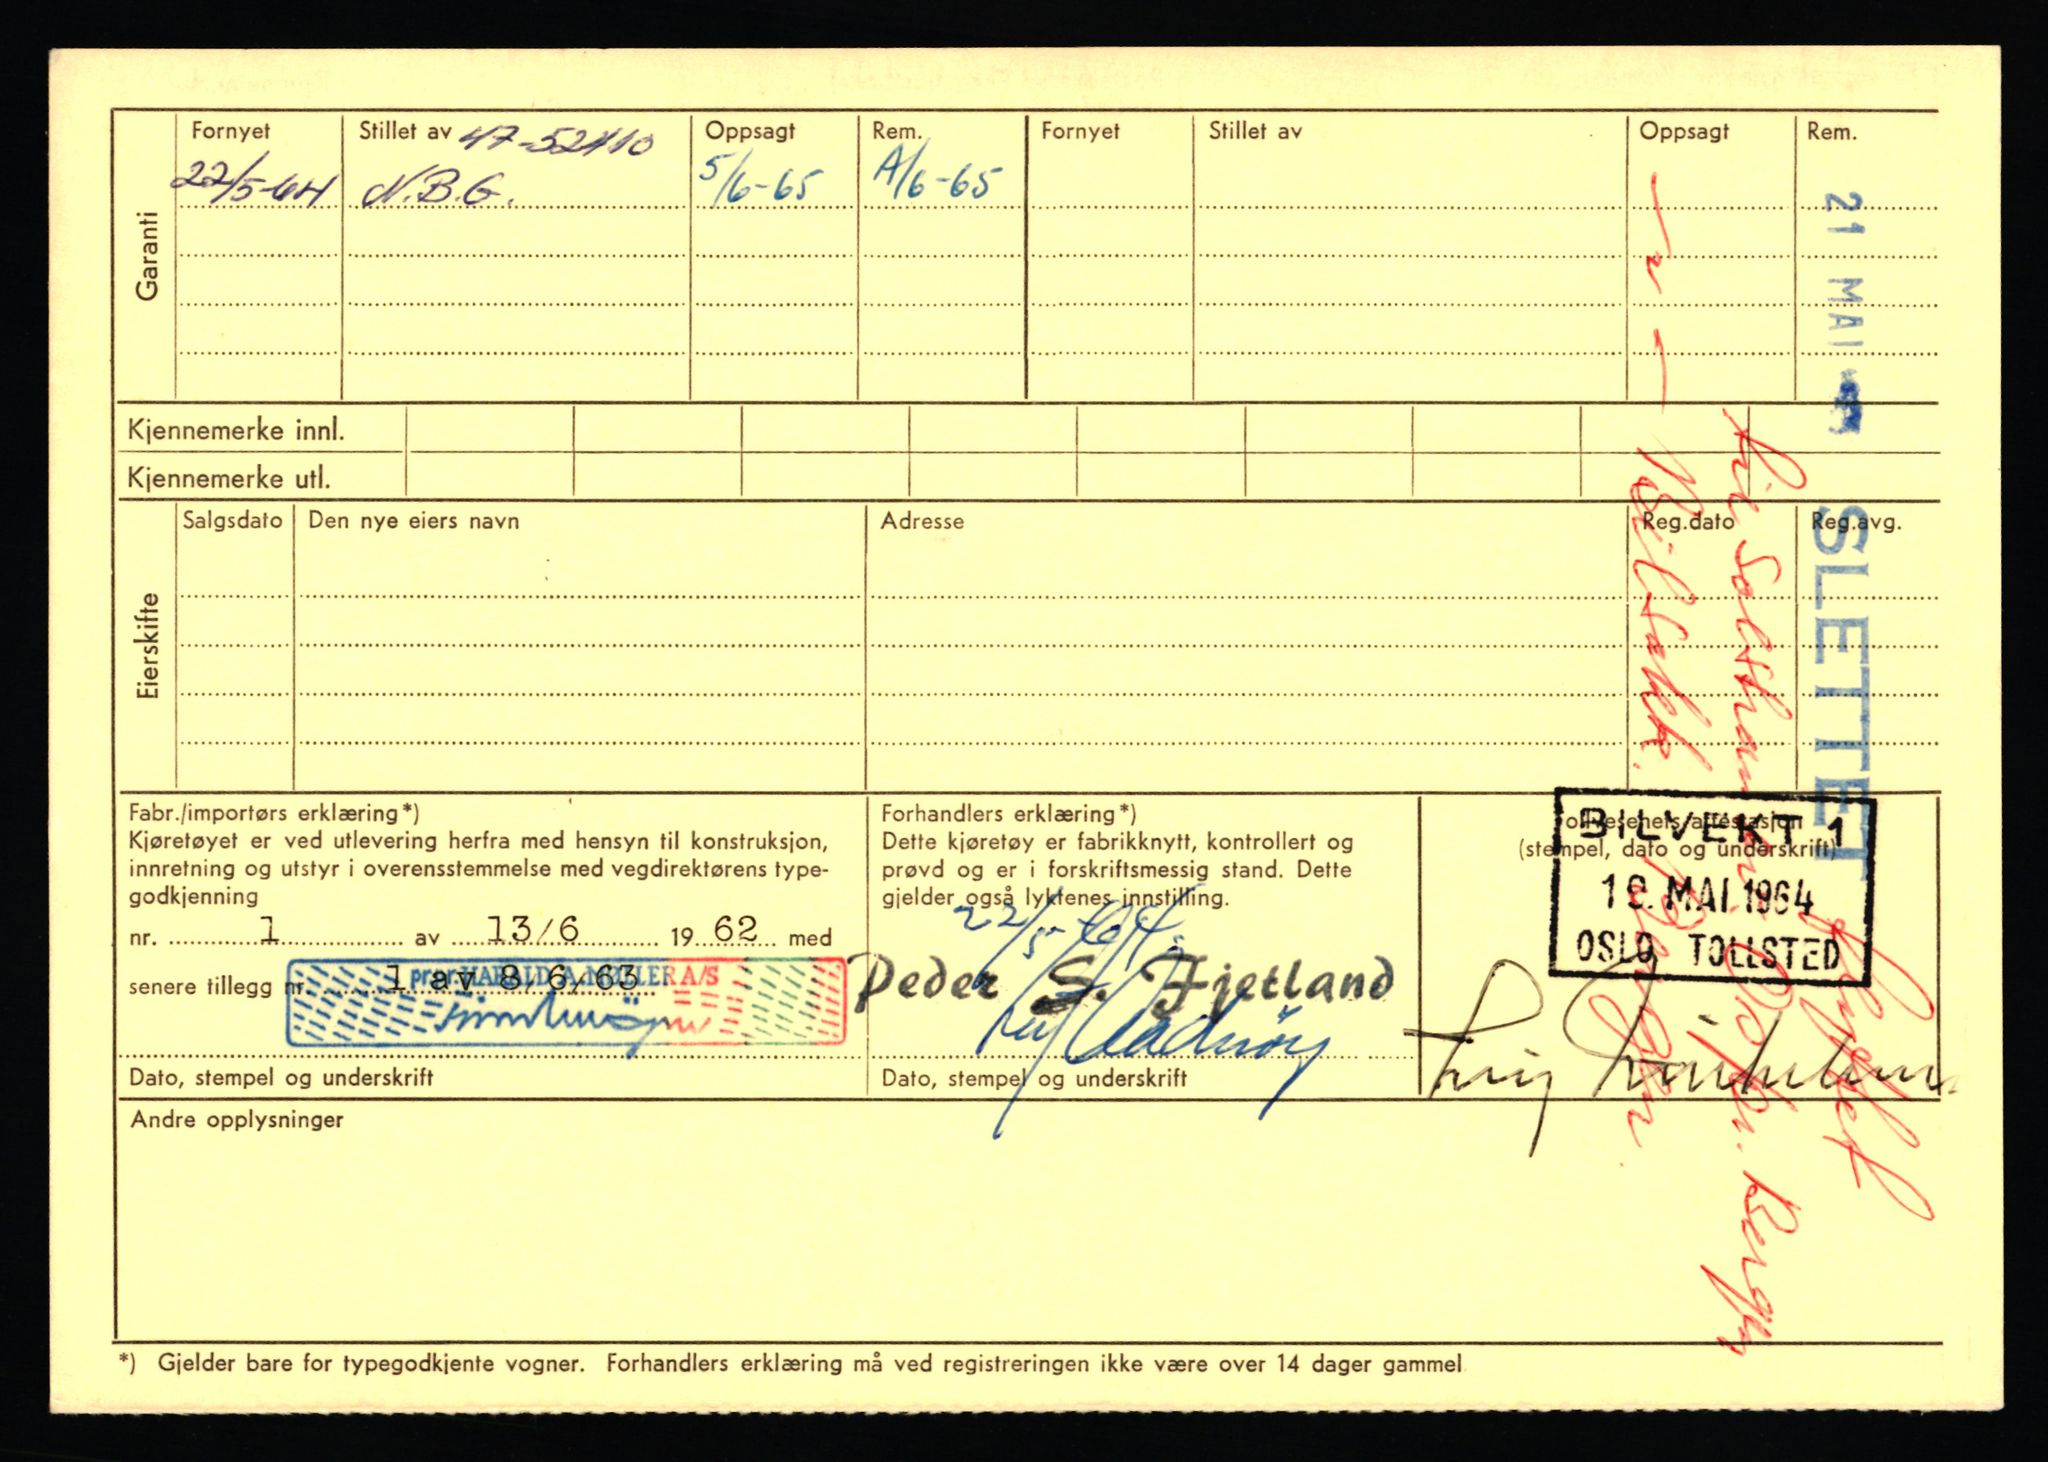 Garanti
Fornyet Stillet av 47-52410 Oppsagt Rem. Fornyet Stillet av Oppsagt Rem.
22/5-64 N.B.G. 5/6-65 A/6-65
21 MAI
Kjennemerke innl.
Kjennemerke utl.
Eierskifte
Salgsdato Den nye eiers navn Adresse Reg.dato Reg.avg.
SLETTET
Fabr./importørs erklæring*)
Kjøretøyet er ved utlevering herfra med hensyn til konstruksjon,
innretning og utstyr i overensstemmelse med vegdirektørens type-
godkjenning
nr. 1 av 13/6 19 62 med
senere tillegg nr. 1 av 8/6/63
HARALD A. MØLLER A/S
Dato, stempel og underskrift
Forhandlers erklæring*)
Dette kjøretøy er fabrikknytt, kontrollert og
prøvd og er i forskriftsmessig stand. Dette
gjelder også lyktenes innstilling.
22/5-64
Peder S. Fjetland
Dato, stempel og underskrift
Tollvesenets attestasjon
(stempel, dato og underskrift)
BILVEKT 1
MAI 1964
OSLO TOLLSTED
Andre opplysninger
*) Gjelder bare for typegodkjente vogner. Forhandlers erklæring må ved registreringen ikke være over 14 dager gammel